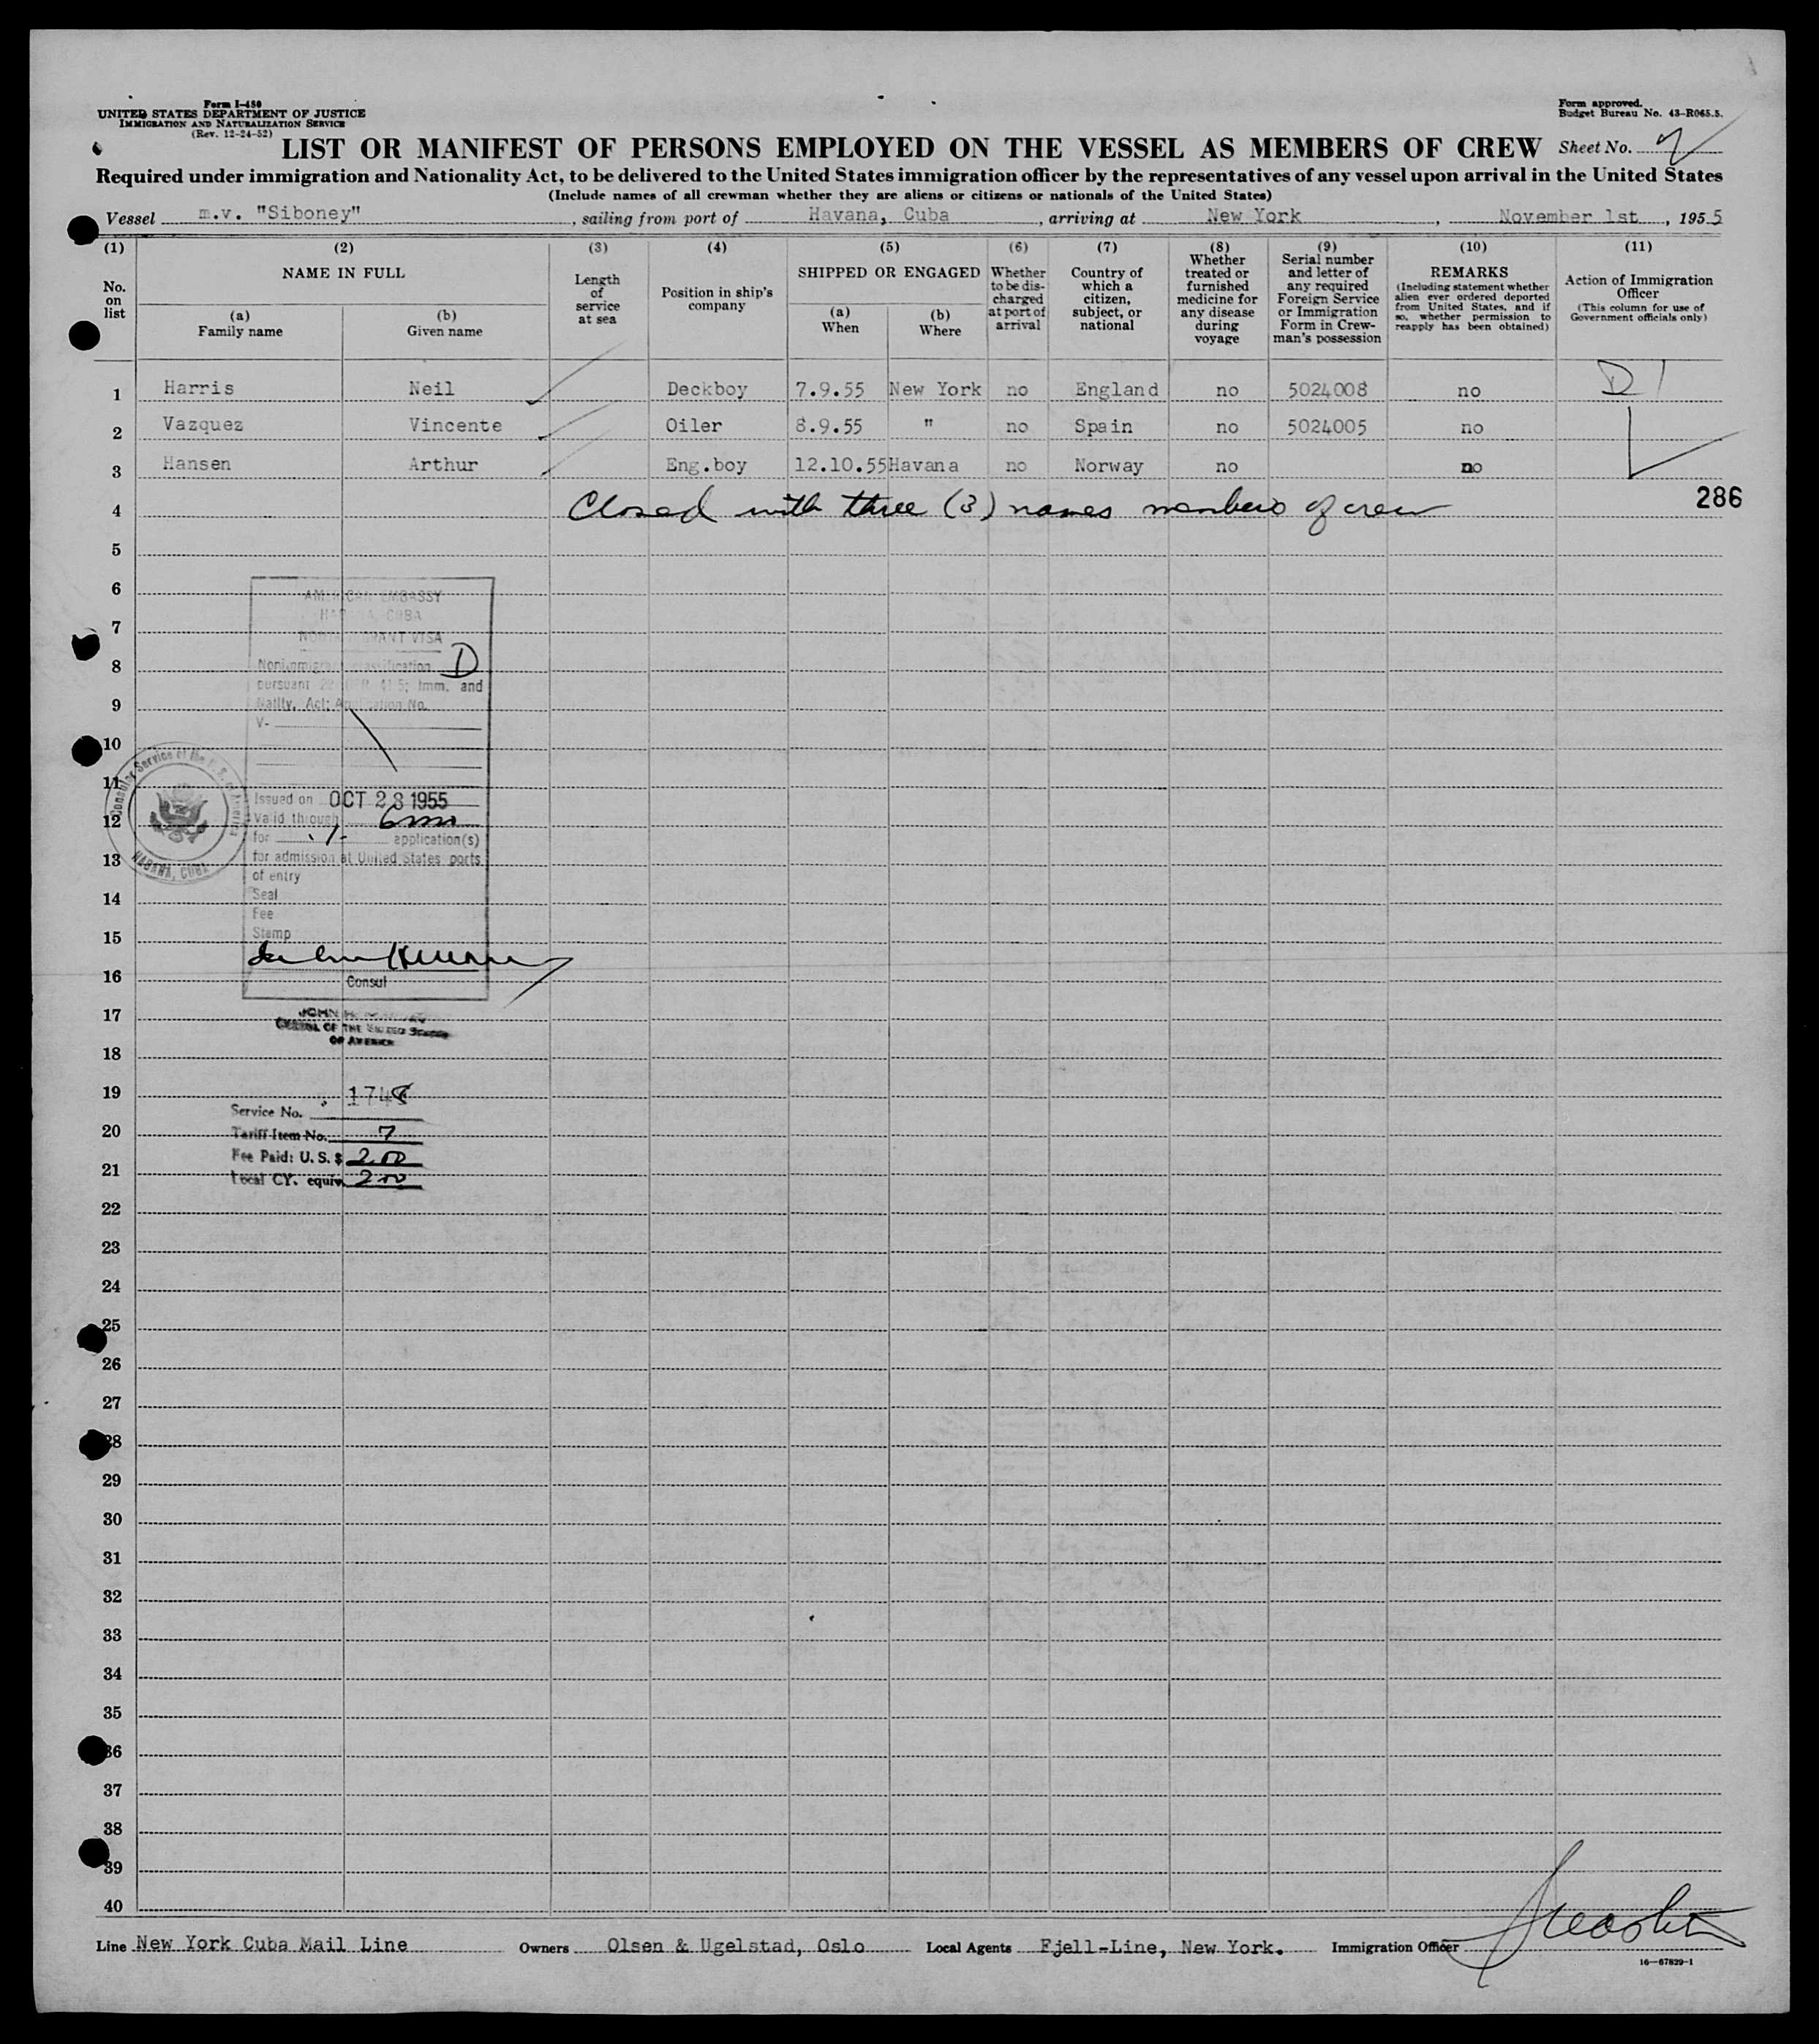 Form I-480
UNITED STATES DEPARTMENT OF JUSTICE
IMMIGRATION AND NATURALIZATION SERVICE
(Rev. 12-24-52)
Form approved.
Budget Bureau No. 43-R065.5.
LIST OR MANIFEST OF PERSONS EMPLOYED ON THE VESSEL AS MEMBERS OF CREW Sheet No.
Required under immigration and Nationality Act, to be delivered to the United States immigration officer by the representatives of any vessel upon arrival in the United States
(Include names of all crewman whether they are aliens or citizens or nationals of the United States)
Vessel m.v. "Siboney", sailing from port of Havana, Cuba, arriving at New York, November 1st, 1955
(1) (2) (3) (4) (5) (6) (7) (8) (9) (10) (11)
No. on list
NAME IN FULL
(a) Family name
(b) Given name
Length of service at sea
Position in ship's company
SHIPPED OR ENGAGED
(a) When
(b) Where
Whether to be discharged at port of arrival
Country of which a citizen, subject, or national
Whether treated or furnished medicine for any disease during voyage
Serial number and letter of any required Foreign Service or Immigration Form in Crewman's possession
REMARKS
(Including statement whether alien ever ordered deported from United States, and if so, whether permission to reapply has been obtained)
Action of Immigration Officer
(This column for use of Government officials only)
1 Harris Neil Deckboy 7.9.55 New York no England no 5024008 no D 1
2 Vazquez Vincente Oiler 8.9.55 " no Spain no 5024005 no
3 Hansen Arthur Eng.boy 12.10.55 Havana no Norway no no
4 Closed with three (3) names members of crew 286
5
6 AMERICAN EMBASSY
HABANA, CUBA
7 NONIMMIGRANT VISA
8 Nonimmigrant classification D
pursuant 22 CFR 41.5; Imm. and
9 Natlty. Act; Application No.
V-
10
11 Issued on OCT 28 1955
12 Valid through 6 mo
for application(s)
13 for admission at United States ports
of entry
Seal
14 Fee
15 Stamp
16 Consul
Consular Service of the U.S. of America
HABANA, CUBA
17 JOHN
CONSUL OF THE UNITED STATES
OF AMERICA
18
19 1748
Service No.
20 Tariff Item No. 7
Fee Paid: U. S. $ 2.00
21 Local CY. equiv. 2.00
22
23
24
25
26
27
28
29
30
31
32
33
34
35
36
37
38
39
40
Line New York Cuba Mail Line Owners Olsen & Ugelstad, Oslo Local Agents Fjell-Line, New York. Immigration Officer
16—67829-1